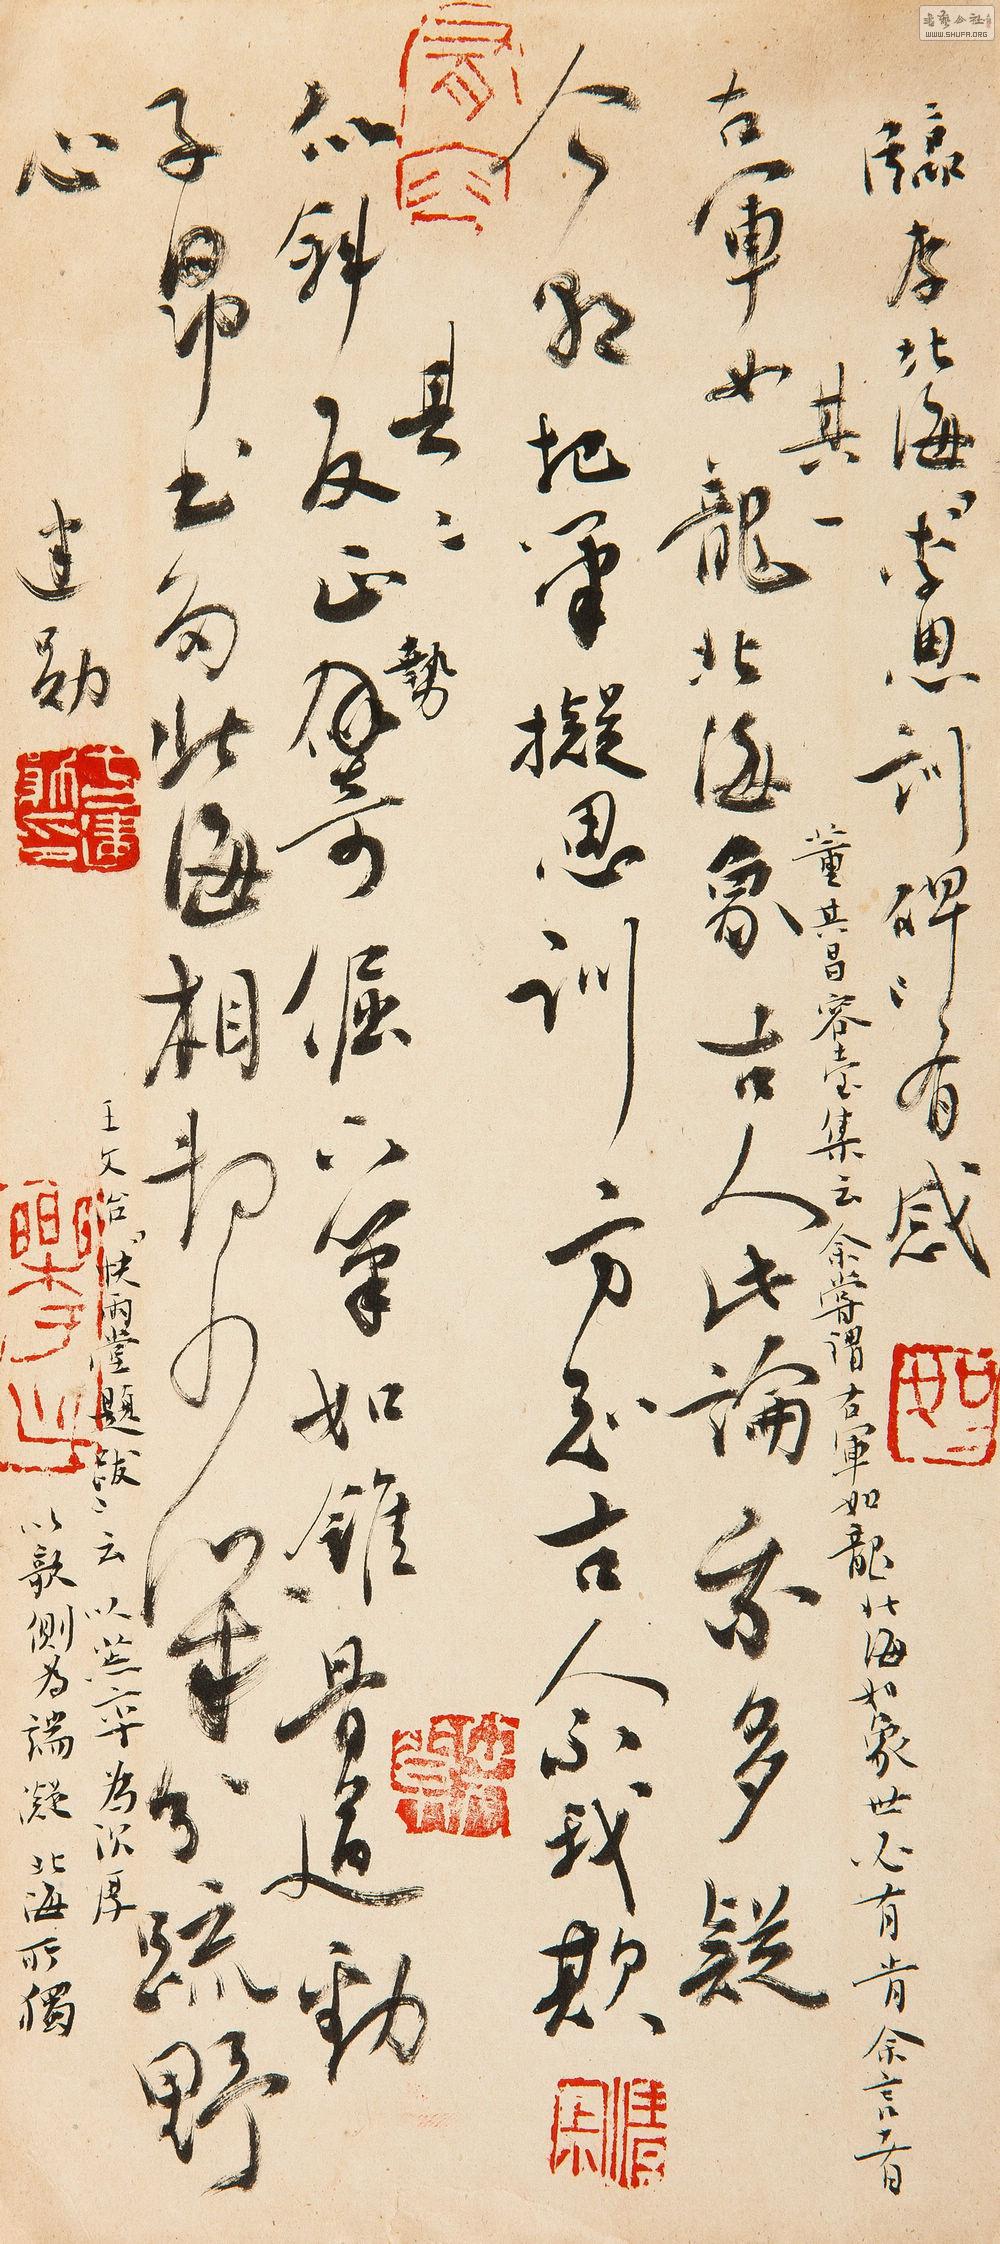 臨李北海李思訓碑有感
其一
右軍如龍北海象
古人此論我多疑
董其昌容臺集云余嘗謂右軍如龍北海如象世必有肯余言者
今朝把筆擬思訓
方知古人不我欺
其二
似斜反正勢奇倔
下筆如錐骨遒勁
勢
子昂書為北海相
却少深半分疏野
心
王文治快雨堂題跋云以
為深厚
以欹側為端凝北海所獨
建勛
書藝公社
WWW.SHUFA.ORG